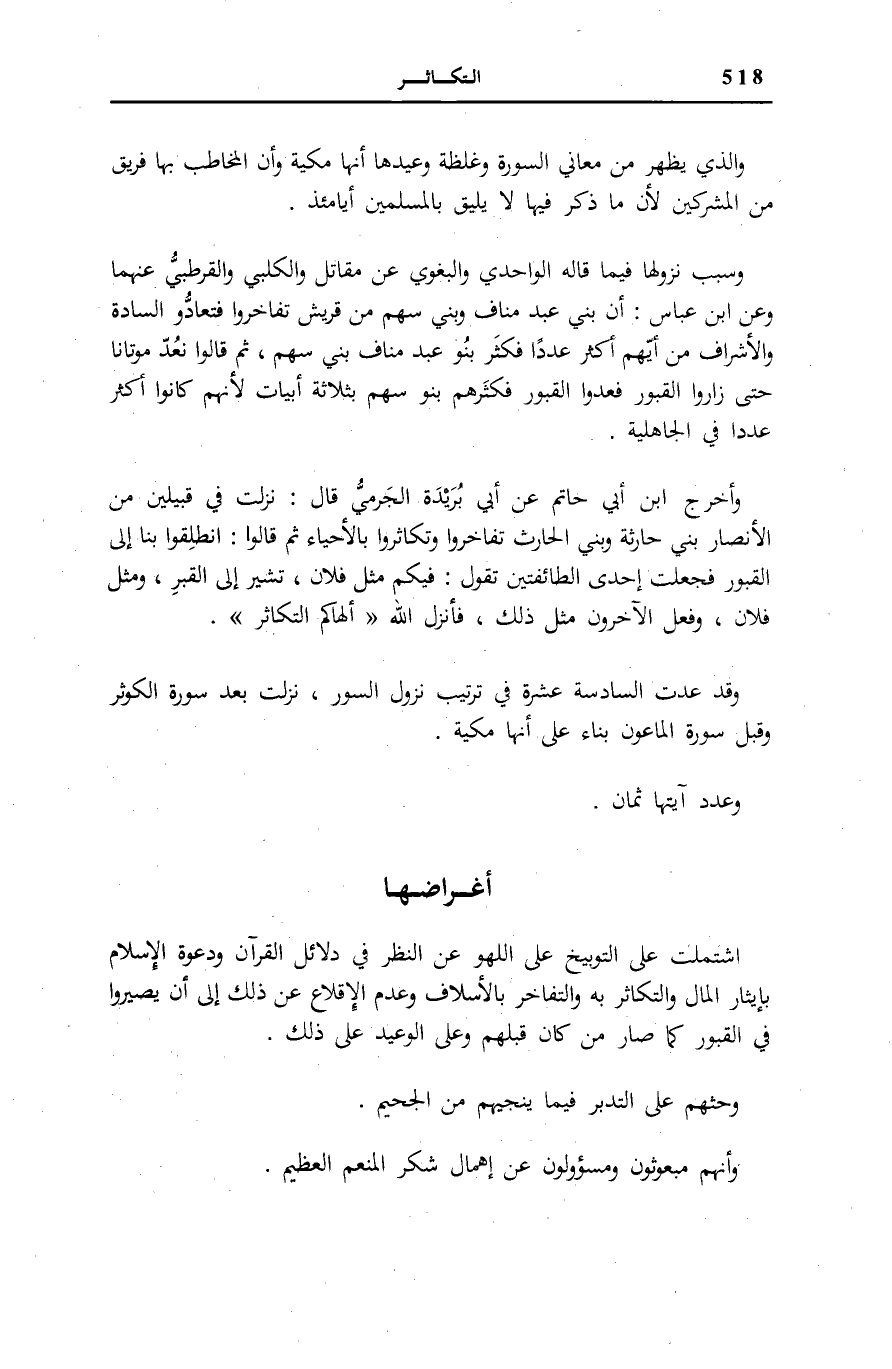 518
التكاثر
والذي يظهر من معاني السورة وغلظة وعيدها أنها مكية وأن المخاطب بها فريق
من المشركين لأن ما ذكر فيها لا يليق بالمسلمين أيامئذ .
وسبب نزولها فيما قاله الواحدي والبغوي عن مقاتل والكلبي والقرطبيُّ عنهما
وعن ابن عباس : أن بني عبد مناف وبني سهم من قريش تفاخروا فتعادُّو السادة
والأشراف من أيّهم أكثر عددًا فكثَر بنُو عبد مناف بني سهم ، ثم قالوا نعُدّ موتانا
حتى زاروا القبور فعدوا القبور فكثَرهم بنو سهم بثلاثة أبيات لأنهم كانوا أكثر
عددا في الجاهلية .
وأخرج ابن أبي حاتم عن أبي بُرَيْدَة الجَرميُّ قال : نزلت في قبيلين من
الأنصار بني حارثة وبني الحارث تفاخروا وتكاثروا بالأحياء ثم قالوا : انطلِقوا بنا إلى
القبور فجعلت إحدى الطائفتين تقول : فيكم مثل فلان ، تشير إلى القبرِ ، ومثل
فلان ، وفعل الآخرون مثل ذلك ، فأنزل الله « ألهاكم التكاثر » .
وقد عدت السادسة عشرة في ترتيب نزول السور ، نزلت بعد سورة الكوثر
وقبل سورة الماعون بناء على أنها مكية .
وعدد آيتها ثمان .
أغراضها
اشتملت على التوبيخ على اللهو عن النظر في دلائل القرآن ودعوة الإسلام
بإيثار المال والتكاثر به والتفاخر بالأسلاف وعدم الإقلاع عن ذلك إلى أن يصيروا
في القبور كما صار من كان قبلهم وعلى الوعيد على ذلك .
وحثهم على التدبر فيما ينجيهم من الجحيم .
وأنهم مبعوثون ومسؤولون عن إهمال شكر المنعم العظيم .